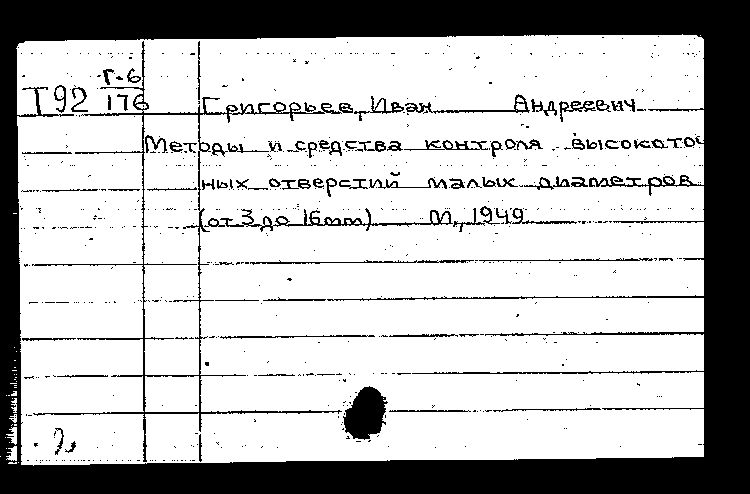 Т92 Г-6
176 Григорьев, Иван Андреевич
Методы и средства контроля высокото
ных отверстий малых диаметров
(от 3 до 16мм) М., 1949